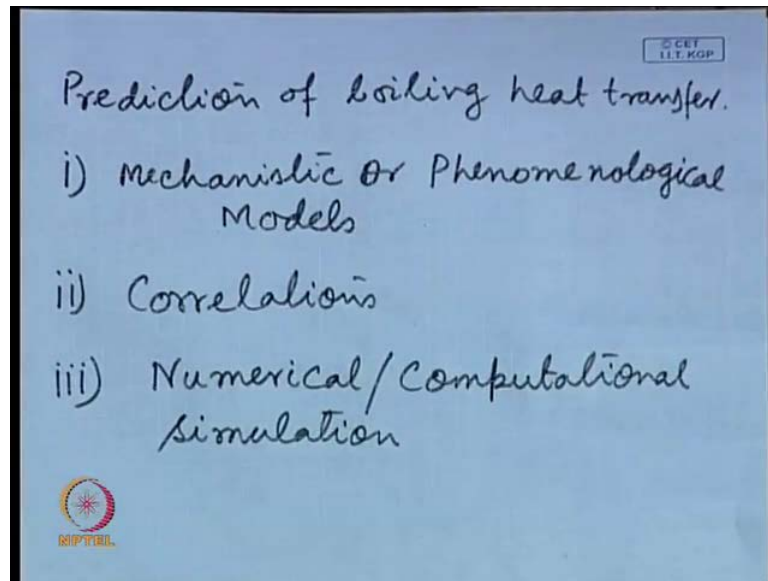 © CET
I.I.T. KGP
Prediction of boiling heat transfer.
i) Mechanistic or Phenomenological
Models
ii) Correlations
iii) Numerical/Computational
simulation
NPTEL